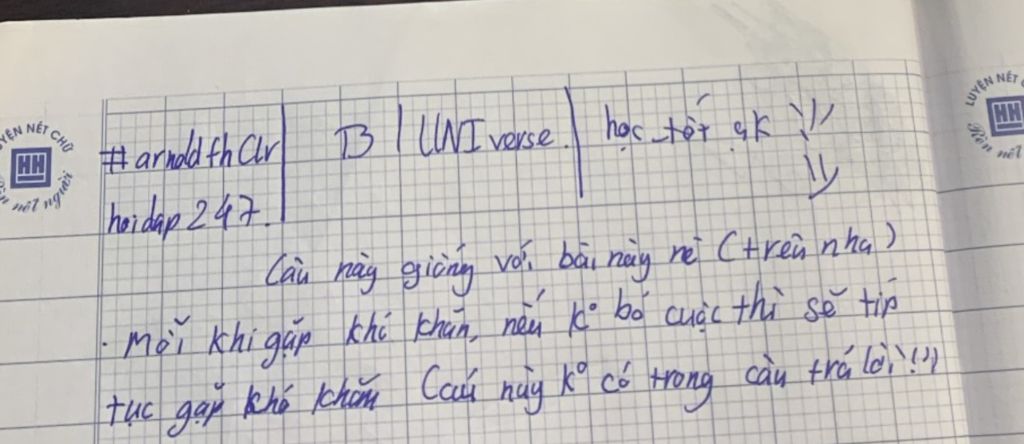 #arnoldthClr | B | UNIverse. | học tốt gk :))
hoidap247. :))
Câu này giống với bài này nè (trên nha)
. Mỗi khi gặp khó khăn, nếu kº bỏ cuộc thì sẽ tiếp
tục gặp khó khăn (câu này kº có trong câu trả lời !!)
LUYỆN NÉT CHỮ
HH
Rèn nết người
LUYỆN NÉT
HH
Rèn nết